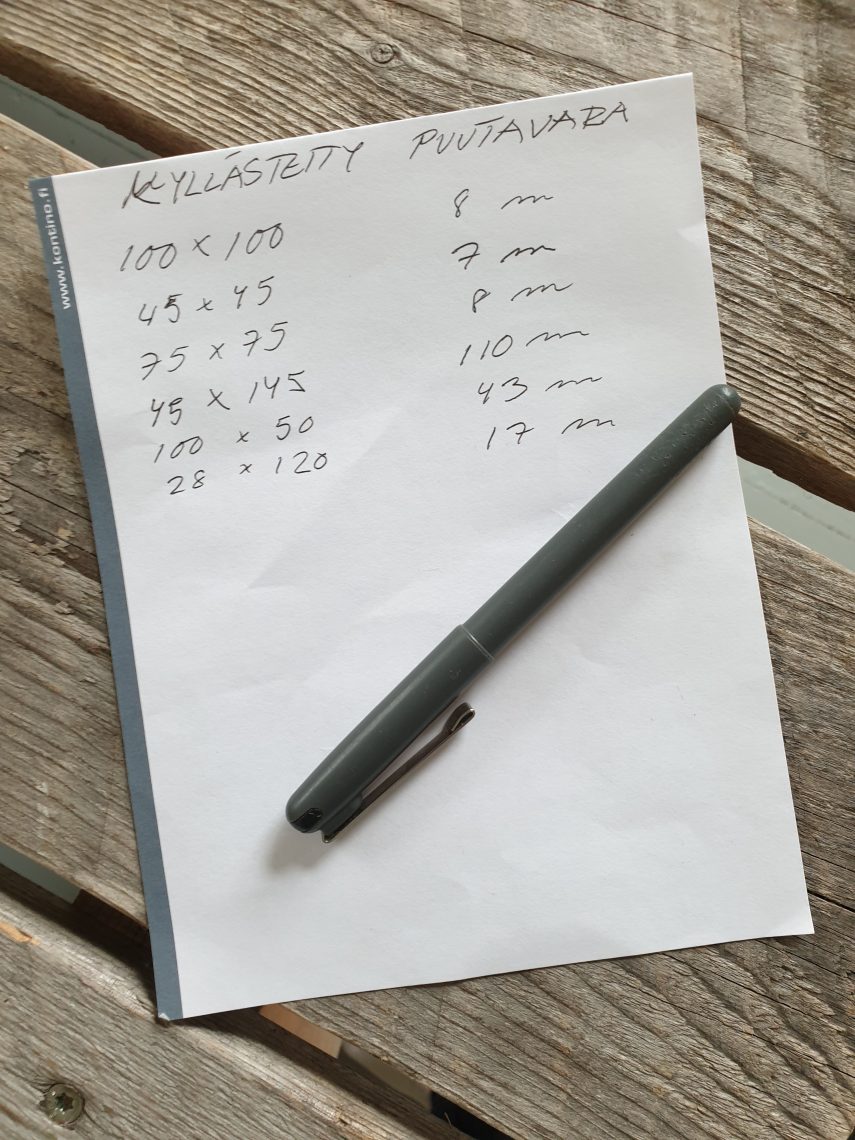 KYLLÄSTETTY PUUTAVARA
100 x 100 8 m
45 x 45 7 m
75 x 75 8 m
45 x 145 110 m
100 x 50 43 m
28 x 120 17 m
www.kontino.fi